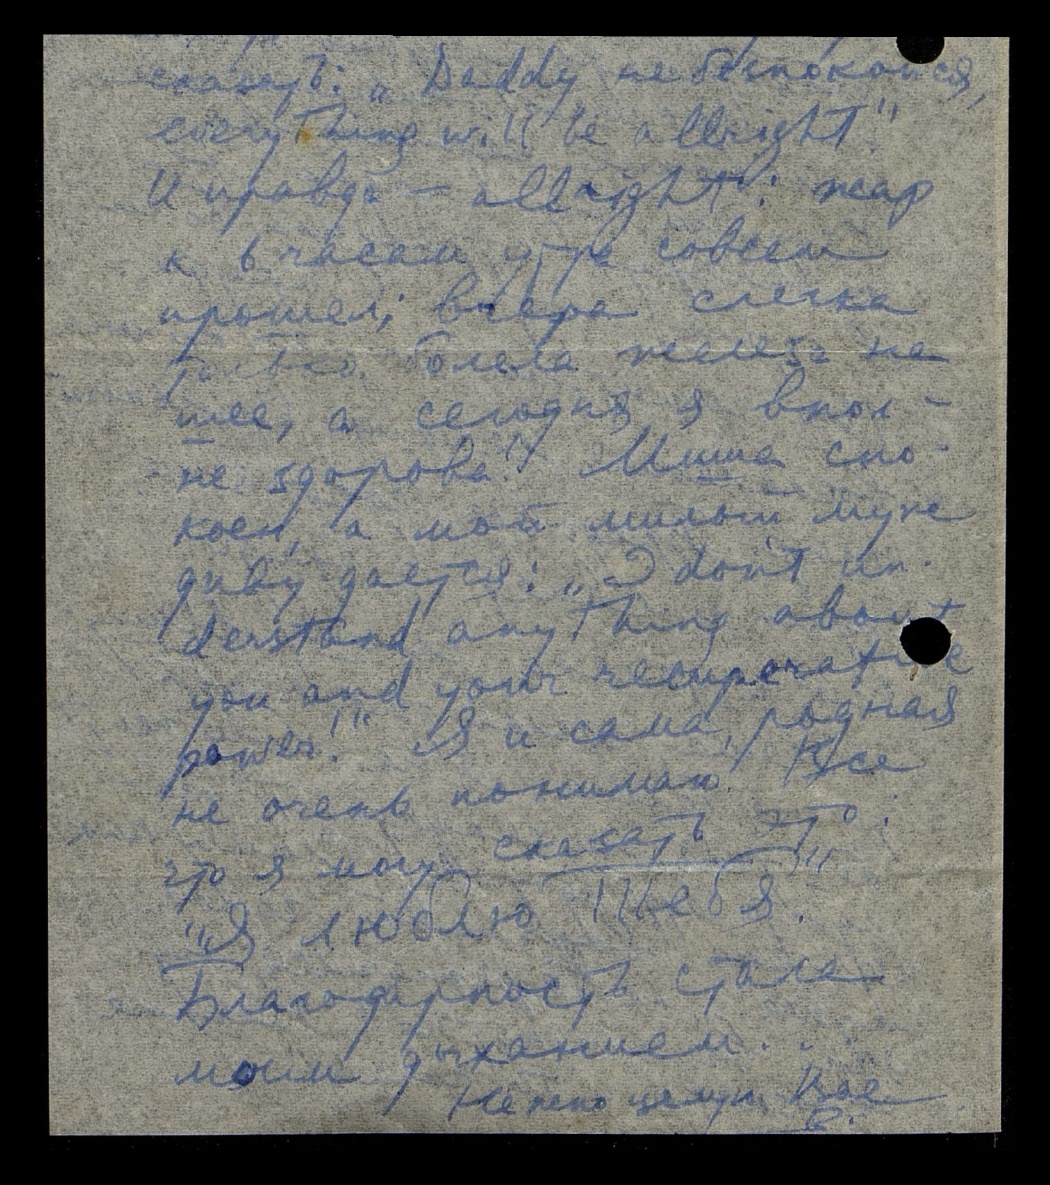 сказать: „Daddy не беспокойся,
everything will be allright"
И правда — allright": жар
к 6 часам утра совсем
прошел; вчера слегка
только болела железа на
шее, а сегодня я впол-
не здорова!" Миша спо-
коен, а мой милый муж
диву дается: „I don't un-
derstand anything about
you and your recuperative
power!" Я и сама, родная
не очень понимаю. Все
что я могу сказать это:
"Я люблю Тебя".
Благодарность стала
моим дыханием...
Нежно целую Вас
В.